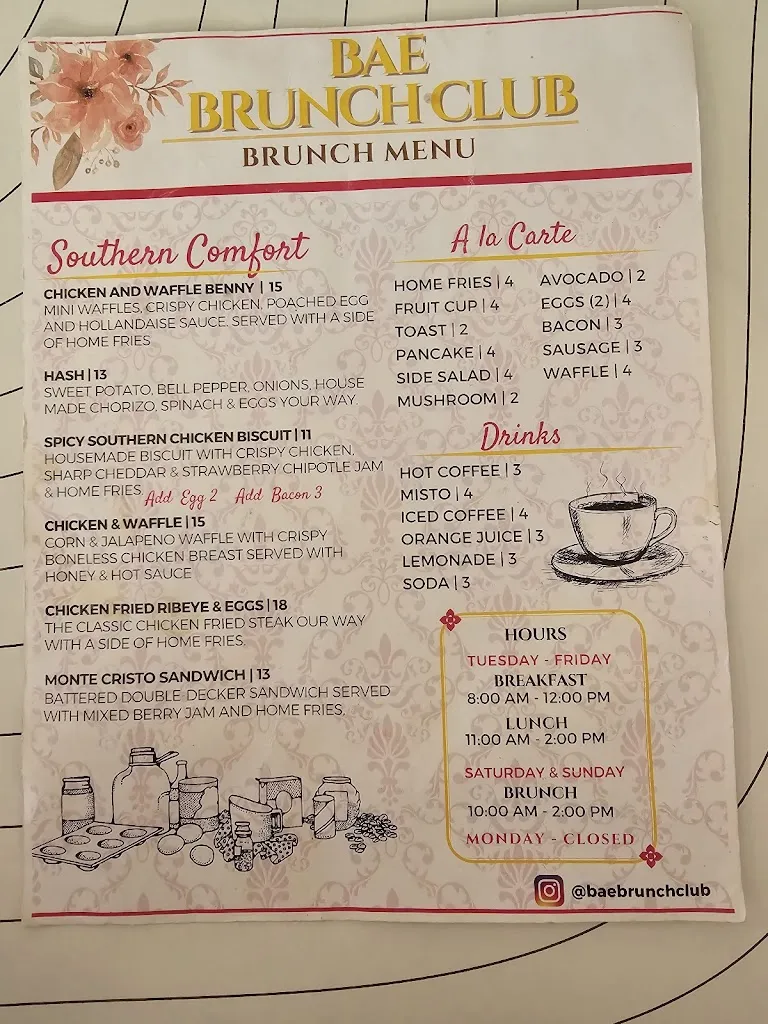 BAE
BRUNCH CLUB
BRUNCH MENU
Southern Comfort
CHICKEN AND WAFFLE BENNY | 15
MINI WAFFLES, CRISPY CHICKEN, POACHED EGG
AND HOLLANDAISE SAUCE. SERVED WITH A SIDE
OF HOME FRIES
HASH | 13
SWEET POTATO, BELL PEPPER, ONIONS, HOUSE
MADE CHORIZO, SPINACH & EGGS YOUR WAY.
SPICY SOUTHERN CHICKEN BISCUIT | 11
HOUSEMADE BISCUIT WITH CRISPY CHICKEN,
SHARP CHEDDAR & STRAWBERRY CHIPOTLE JAM
& HOME FRIES Add Egg 2 Add Bacon 3
CHICKEN & WAFFLE | 15
CORN & JALAPENO WAFFLE WITH CRISPY
BONELESS CHICKEN BREAST SERVED WITH
HONEY & HOT SAUCE
CHICKEN FRIED RIBEYE & EGGS | 18
THE CLASSIC CHICKEN FRIED STEAK OUR WAY
WITH A SIDE OF HOME FRIES.
MONTE CRISTO SANDWICH | 13
BATTERED DOUBLE-DECKER SANDWICH SERVED
WITH MIXED BERRY JAM AND HOME FRIES.
A la Carte
HOME FRIES | 4
FRUIT CUP | 4
TOAST | 2
PANCAKE | 4
SIDE SALAD | 4
MUSHROOM | 2
AVOCADO | 2
EGGS (2) | 4
BACON | 3
SAUSAGE | 3
WAFFLE | 4
Drinks
HOT COFFEE | 3
MISTO | 4
ICED COFFEE | 4
ORANGE JUICE | 3
LEMONADE | 3
SODA | 3
HOURS
TUESDAY - FRIDAY
BREAKFAST
8:00 AM - 12:00 PM
LUNCH
11:00 AM - 2:00 PM
SATURDAY & SUNDAY
BRUNCH
10:00 AM - 2:00 PM
MONDAY - CLOSED
@baebrunchclub